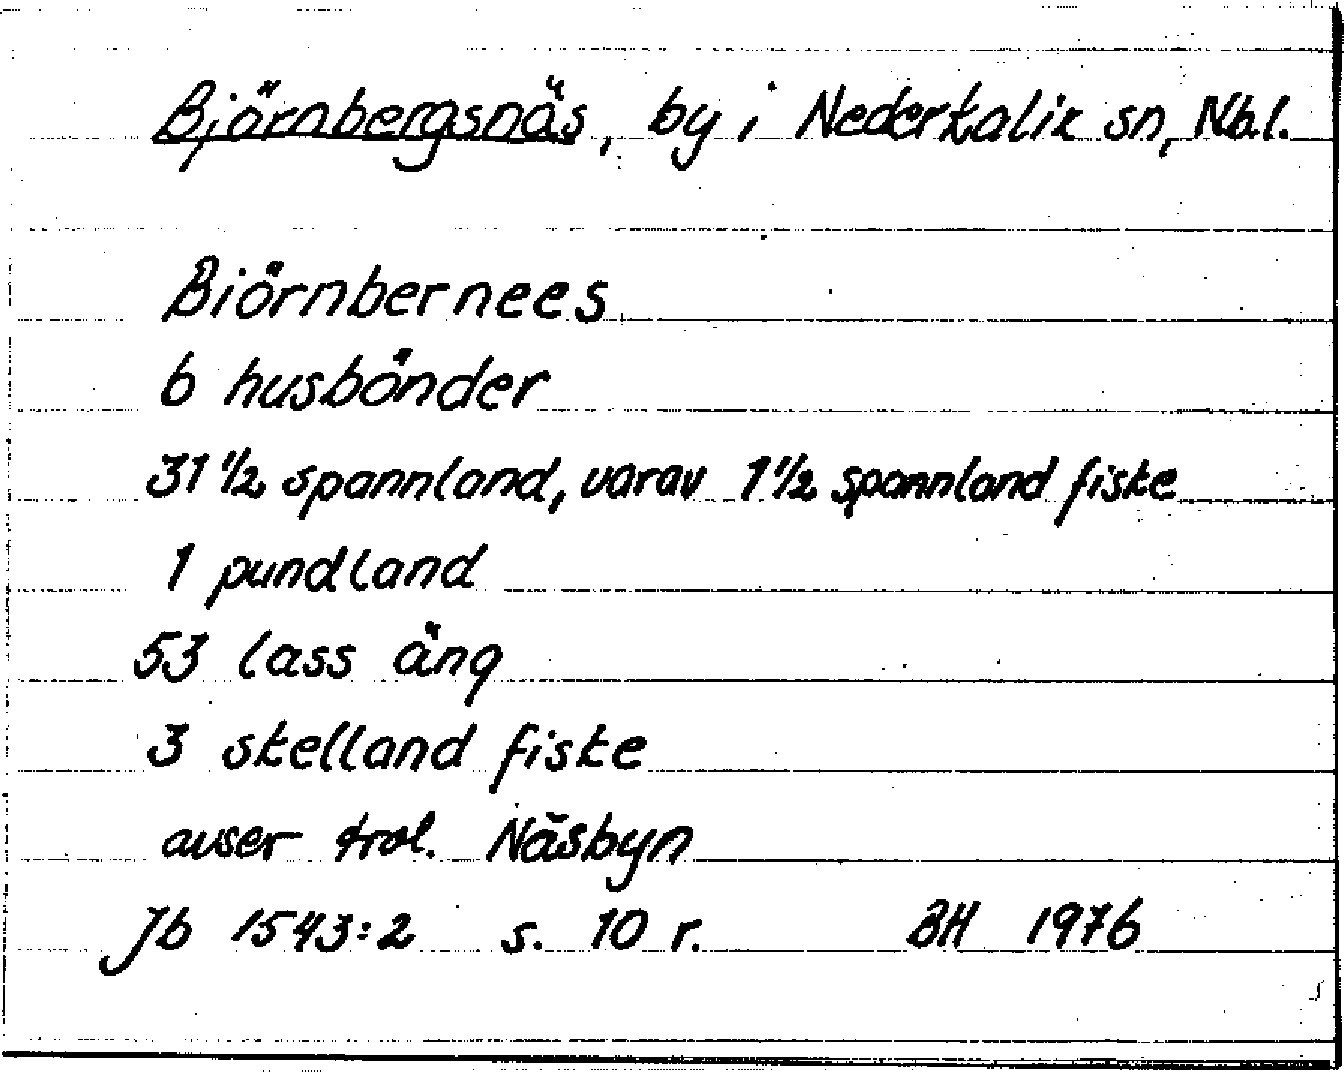 Björnbergsnäs, by i Nederkalix sn, Nb.l.
Biörnbernees
6 husbönder
31 1/2 spannland, varav 1 1/2 spannland fiske
1 pundland
53 lass äng
3 skelland fiske
avser trol. Näsbyn
Jb 1543:2 s. 10 r. BH 1976